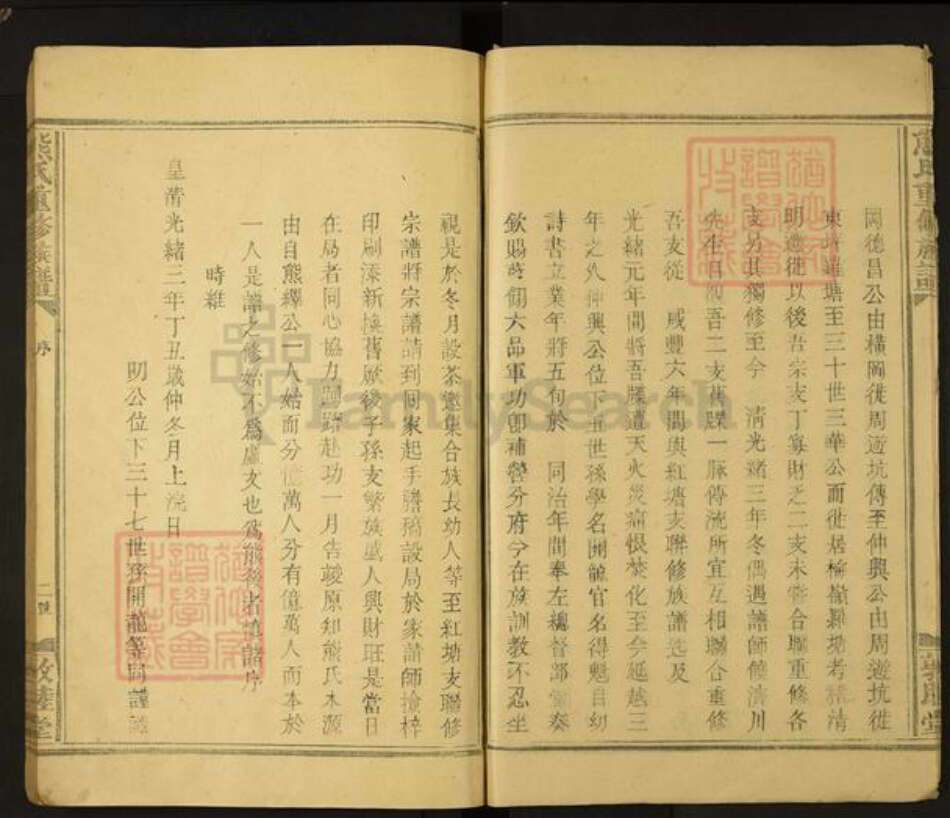 岡德昌公由橫岡徙周遊坑傳至仲興公由周遊坑徙
東時羅塘至三十世三華公而徙居榆嶺鄴塘考清
明遷徙以後吾宗支丁寡財乏二支未嘗合聯重修各
支另其獨修至今 清光緒三年冬偶遇譜師饒濟川
先生自吾二支舊牒一脉傳流所宜互相聯合重修
吾支從 咸豐六年間與紅塘支聯修族譜迄及
光緒元年間將吾牒遭天火災痛恨焚化至今延越三
年之久仲興公位下五世孫學名開龍官名得魁自幼
詩書立業年將五旬於 同治年間奉左總督部奏
欽賜翎六品軍功即補營分府今在族訓教不忍坐
視是於冬月設茶邀集合族長幼人等至紅塘支聯修
宗譜將宗譜請到回家起手謄稿設局於家請師檢梓
印刷添新換舊厥後子孫支繁族盛人興財旺是當日
在局者同心協力踴躍赴功一月告竣原知熊氏木源
由自熊繹公一人始而分億萬人分有億萬人而本於
一人是譜之修始不爲虛文也爲熊後者憶諸序
時維
皇清光緒三年丁丑歲仲冬月上浣日
明公位下三十七世孫開龍等同謹識
熊氏重修族譜
序
二號
敦睦堂
熊氏重修族譜
敦睦堂
FamilySearch